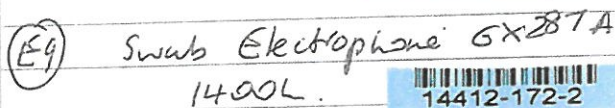 Eg Swab Electrophone GX287A
1400h.
14412-172-2